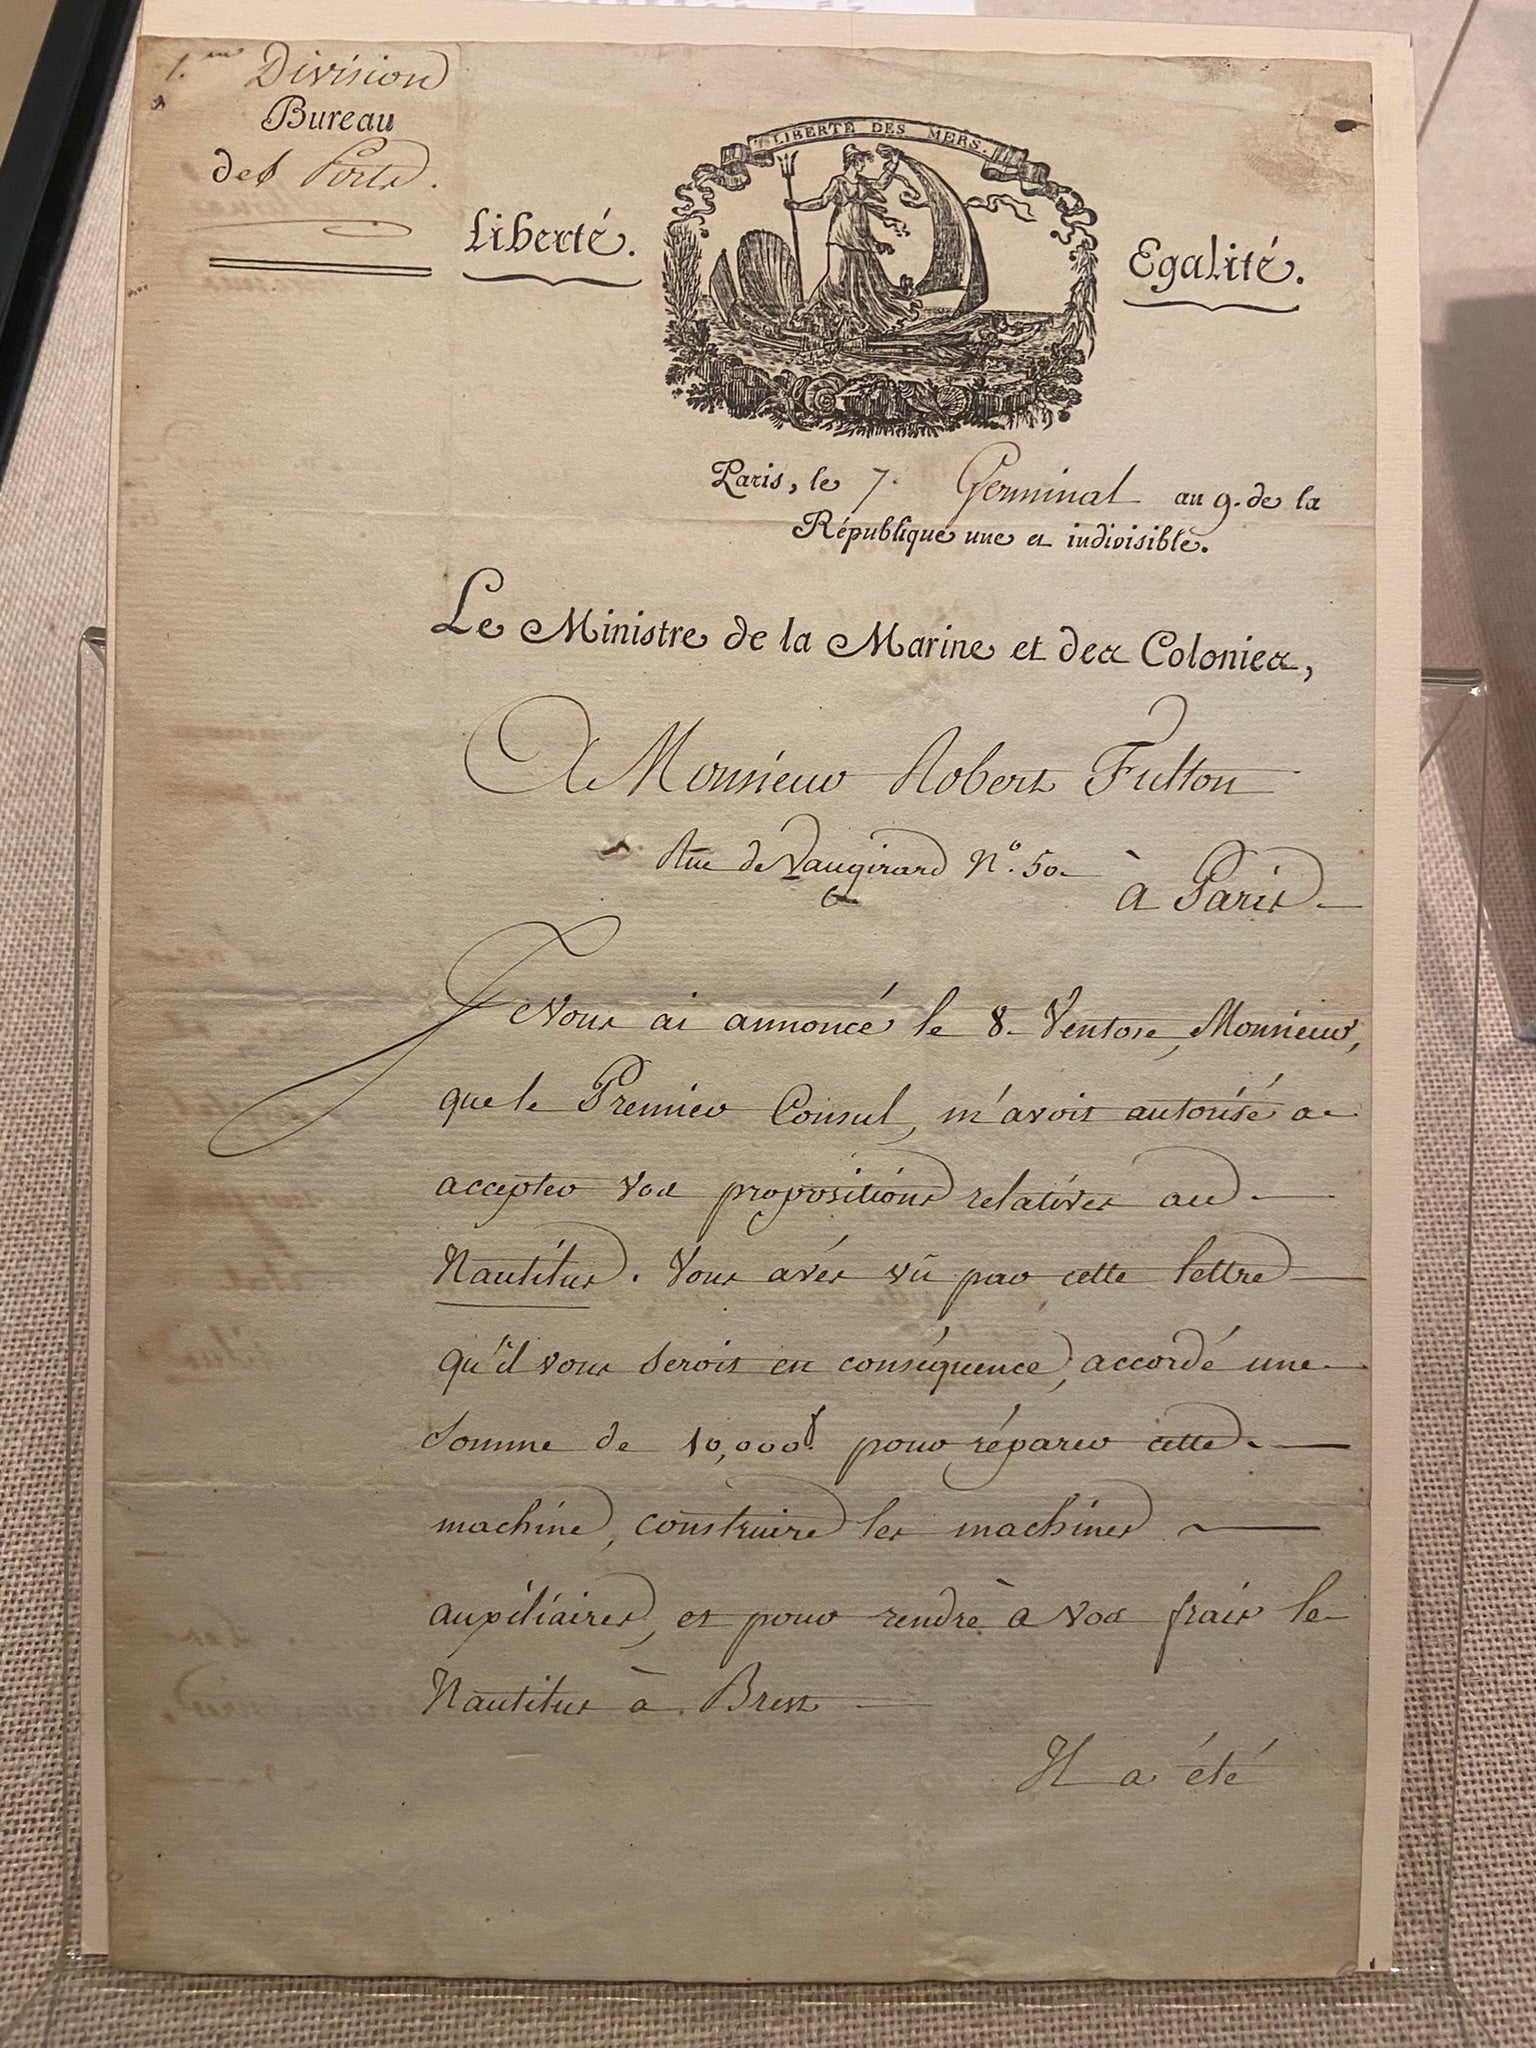 1.ere Division
Bureau
des Ports.
LIBERTÉ DES MERS.
Liberté.
Egalité.
Paris, le 7. Germinal an 9. de la
République une et indivisible.
Le Ministre de la Marine et des Colonies,
A Monsieur Robert Fulton
Rue de Vaugirard N.º 50.
à Paris
Je vous ai annoncé le 8. Ventose, Monsieur,
que le Premier Consul, m'avoit autorisé a
accepter vos propositions relatives au
Nautilus. Vous avés vû par cette lettre
qu'il vous seroit en conséquence, accordé une
somme de 10,000f. pour réparer cette
machine, construire les machines
auxiliaires, et pour rendre à vos frais le
Nautilus à Brest
Il a été